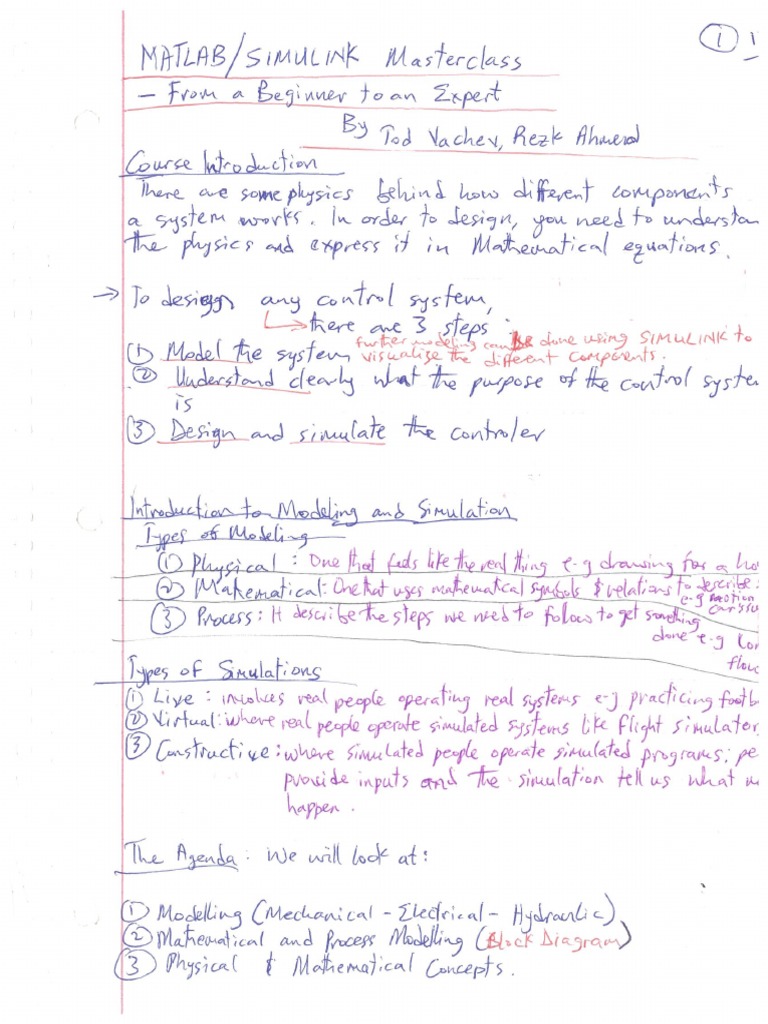 ① 1
MATLAB/SIMULINK Masterclass
- From a Beginner to an Expert
By Tod Vachev, Rezk Ahmend
Course Introduction
There are some physics behind how different components
a system works. In order to design, you need to understan
the physics and express it in Mathematical equations.
→ To design any control system,
there are 3 steps
① Model the system further modeling can be done using SIMULINK to
visualise the different components.
② Understand clearly what the purpose of the control syste
is
③ Design and simulate the controler
Introduction to Modeling and Simulation
Types of Modeling
① Physical : One that feels like the real thing e.g drawing for a ho
② Mathematical: One that uses mathematical symbols & relations to describe
e.g motion
③ Process: It describe the steps we need to follow to get something
done e.g
flow
Types of Simulations
① Live : involves real people operating real systems e.g practicing footb
② Virtual: where real people operate simulated systems like flight simulator
③ Constructive: where simulated people operate simulated programs; pe
provide inputs and the simulation tell us what
happen.
The Agenda: We will look at:
① Modelling (Mechanical - Electrical - Hydraulic)
② Mathematical and Process Modelling (Block Diagram)
③ Physical & Mathematical Concepts.